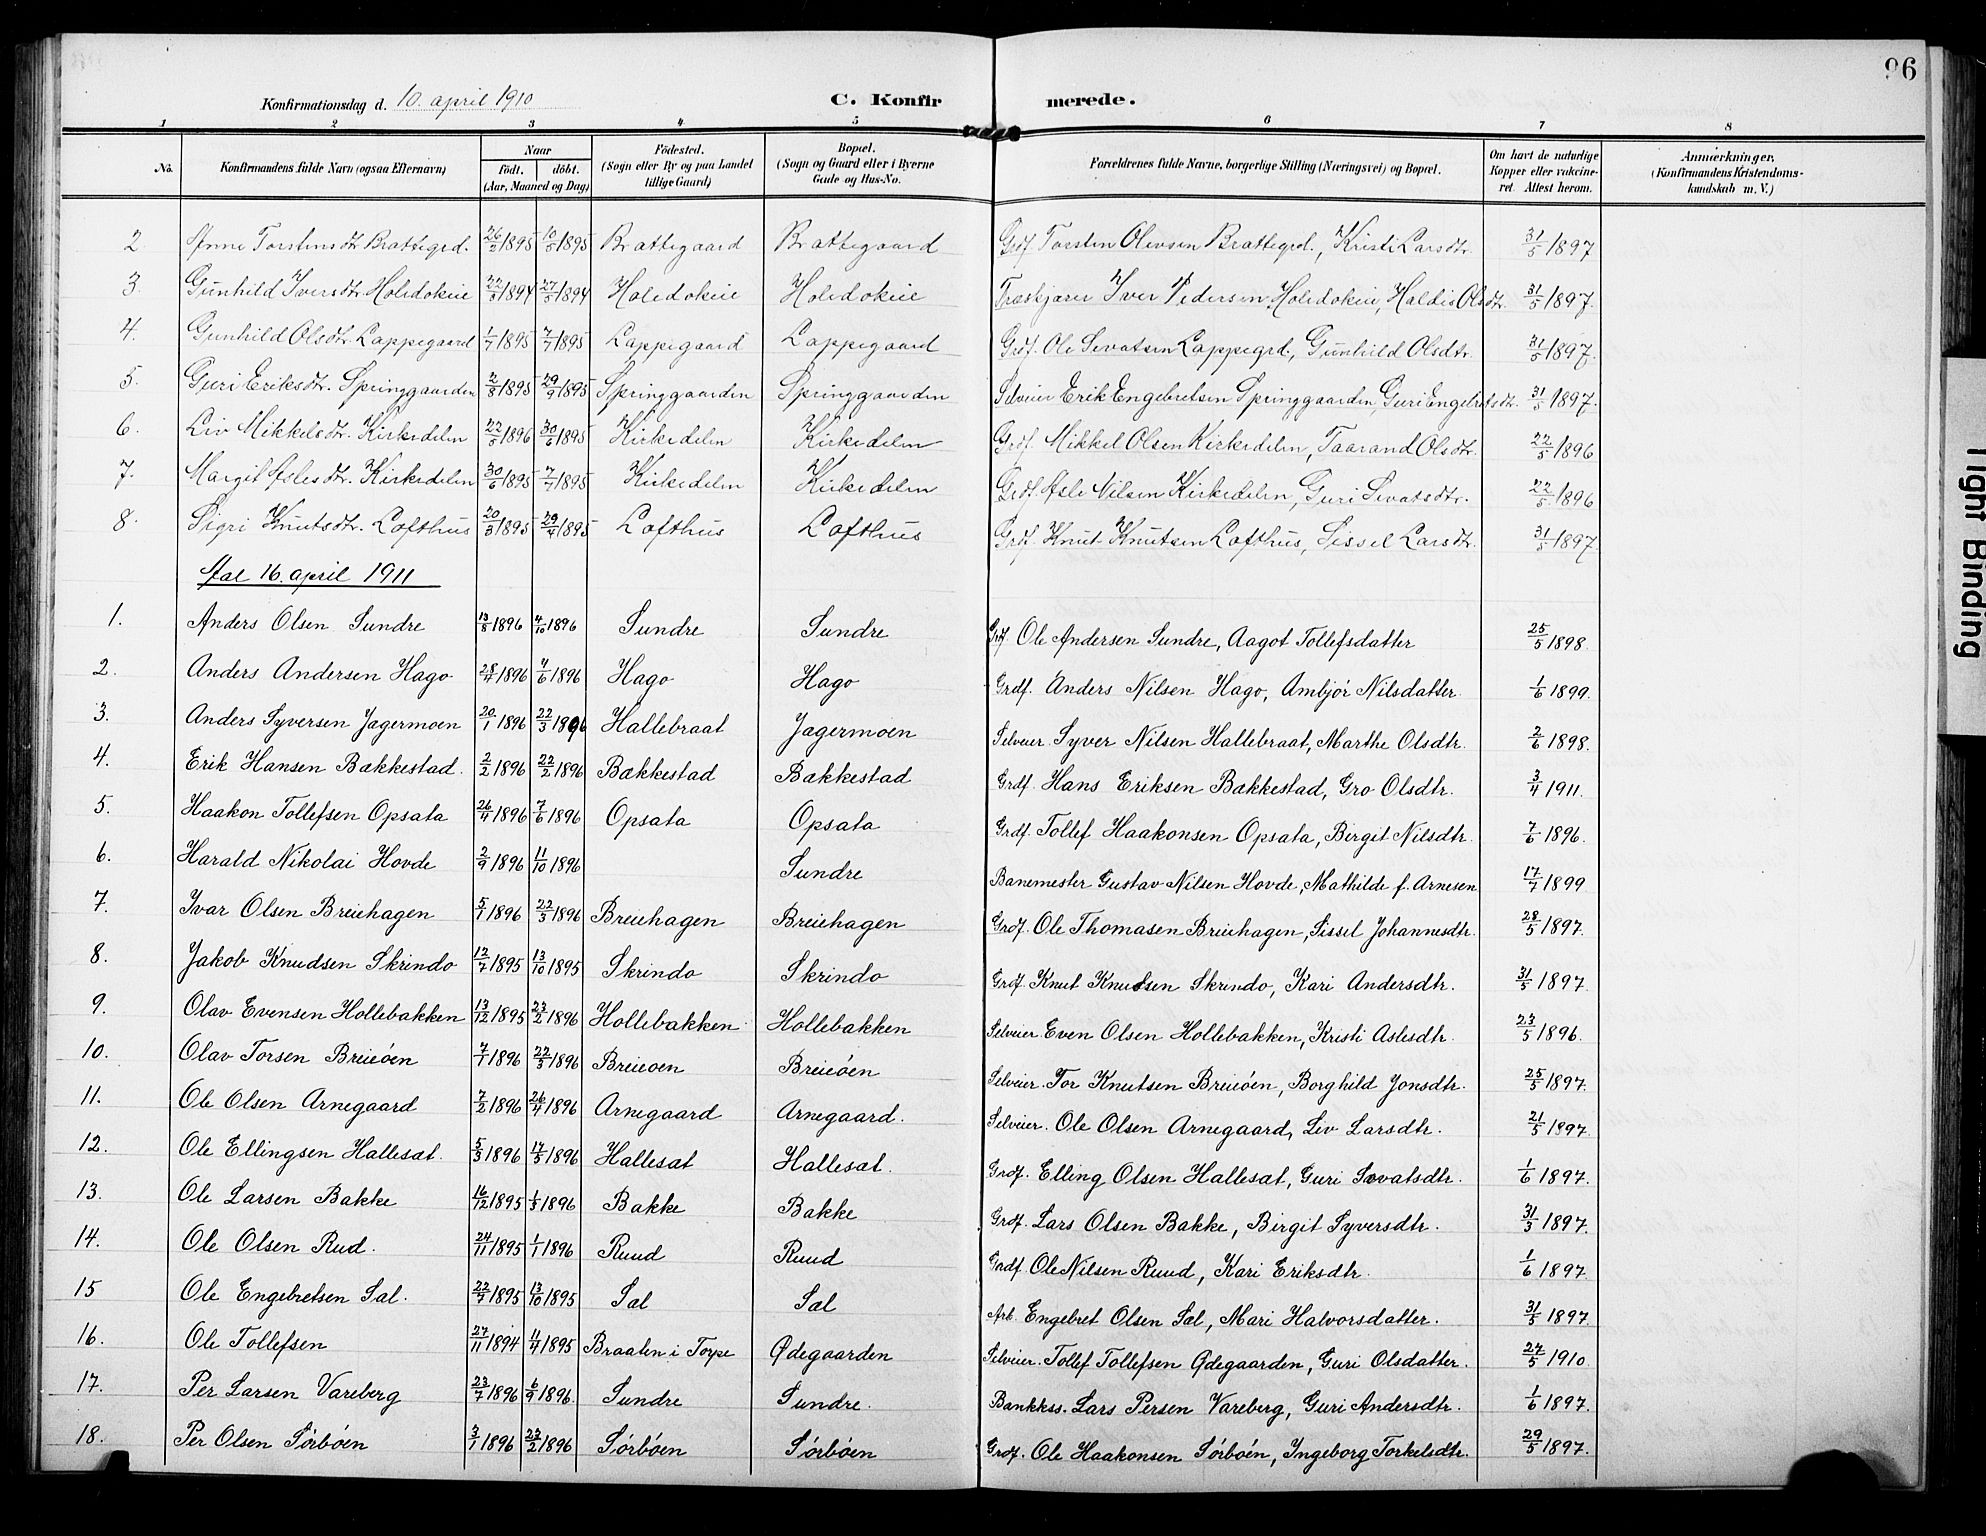 96
Konfirmationsdag d. 10. april 1910 C. Konfirmerede.
1 2 3 4 5 6 7 8
No. Konfirmandens fulde Navn (ogsaa Efternavn) Naar født. døbt. (Aar, Maaned og Dag) Fødested. (Sogn eller By og paa Landet tillige Gaard) Bopæl. (Sogn og Gaard eller i Byerne Gade og Hus-No. Forældrenes fulde Navne, borgerlige Stilling (Næringsvei) og Bopæl. Om havt de naturlige Kopper eller vakcineret. Attest herom. Anmærkninger. (Konfirmandens Kristendomskundskab m. V.)
2 Anne Torstensdtr Brattegrd. 26/2 1895 10/5 1895 Brattegaard Brattegaard Grdf. Torsten Olevsen Brattegrd., Kristi Larsdtr. 31/5 1897
3. Gunhild Iversdtr. Holedokeie 22/3 1894 27/5 1894 Holedokeie Holedokeie Træskjærer Iver Pedersen Holedokeie, Haldis Olsdtr. 31/5 1897.
4. Gunhild Olsdtr. Lappegaard 1/7 1895 7/7 1895 Lappegaard Lappegaard Grdf. Ole Sevatsen Lappegrd., Gunhild Olsdtr. 31/5 1897.
5. Guri Eriksdtr. Springgaarden 2/8 1895 29/9 1895 Springgaarden Springgaarden Selveier Erik Engebretsen Springgaarden, Guri Engebretsdtr. 31/5 1897.
6. Liv Mikkelsdtr. Kirkedelen 22/5 1896 30/6 1895 Kirkedelen Kirkedelen Grdf. Mikkel Olsen Kirkedelen, Taarand Olsdtr. 22/5 1896
7. Margit Aslesdtr. Kirkedelen 30/6 1895 7/7 1895 Kirkedelen Kirkedelen Grdf. Asle Nilsen Kirkedelen, Guri Sevatsdtr. 22/5 1896
8. Sigri Knutsdtr. Lofthus 20/3 1895 29/4 1895 Lofthus Lofthus Grdf. Knut Knutsen Lofthus, Sissel Larsdtr. 31/5 1897
Aal 16. april 1911
1. Anders Olsen Sundre 13/8 1896 4/10 1896 Sundre Sundre Grdf. Ole Andersen Sundre, Aagot Tollefsdatter 25/5 1898.
2. Anders Andersen Hago 28/4 1896 7/6 1896 Hago Hago Grdf. Anders Nilsen Hago, Ambjør Nilsdatter. 1/6 1899.
3. Anders Syversen Jagermoen 20/1 1896 22/3 1896 Hallebraat Jagermoen Selveier. Syver Nilsen Hallebraat, Marthe Olsdtr. 2/6 1898.
4. Erik Hansen Bakkestad. 2/2 1896 22/2 1896 Bakkestad Bakkestad Grdf. Hans Eriksen Bakkestad, Gro Olsdtr. 3/4 1911.
5. Haakon Tollefsen Opsata 26/4 1896 7/6 1896 Opsata Opsata Grdf. Tollef Haakonsen Opsata, Birgit Nilsdtr. 7/6 1896.
6. Harald Nikolai Hovde 2/9 1896 11/10 1896 Sundre Banemester Gustav Nilsen Hovde, Mathilde f. Arnesen 17/7 1899
7. Ivar Olsen Breiehagen 5/1 1896 22/3 1896 Breiehagen Breiehagen Grdf. Ole Thomasen Breiehagen, Sissel Johannesdtr. 28/5 1897.
8. Jakob Knudsen Skrindo 12/7 1895 13/10 1895 Skrindo Skrindo Grdf. Knut Knudsen Skrindo, Kari Andersdtr. 31/5 1897.
9. Olav Evensen Hollebakken 13/12 1895 23/2 1896 Hollebakken Hollebakken Selveier Even Olsen Hollebakken, Kristi Aslesdtr. 23/5 1896.
10. Olav Torsen Breieøen 7/1 1896 22/3 1896 Breieoen Breieøen Selveier. Tor Knutsen Breieøen, Borghild Jonsdtr. 25/5 1897.
11. Ole Olsen Arnegaard 7/2 1896 26/4 1896 Arnegaard Arnegaard. Selveier. Ole Olsen Arnegaard, Liv Larsdtr. 21/5 1897.
12. Ole Ellingsen Hallesat. 5/3 1896 17/5 1896 Hallesat Hallesat. Grdf. Elling Olsen Hallesat, Guri Sevatsdtr. 1/6 1897.
13. Ole Larsen Bakke 16/12 1895 1/3 1896 Bakke Bakke Grdf. Lars Olsen Bakke, Birgit Syversdtr. 31/3 1897.
14. Ole Olsen Rud. 24/11 1895 1/1 1896 Ruud Ruud Grdf. Ole Nilsen Ruud, Kari Eriksdtr. 1/6 1897.
15 Ole Engebretsen Sal. 22/7 1895 13/10 1895 Sal Sal Arb. Engebret Olsen Sal, Mari Halvorsdatter. 31/5 1897
16. Ole Tollefsen 27/11 1894 11/4 1895 Braaten i Torpe Ødegaarden Selveier. Tollef Tollefsen Ødegaarden, Guri Olsdatter. 27/5 1910.
17. Per Larsen Vareberg 23/7 1896 6/9 1896. Sundre Sundre. Bankkss. Lars Persen Vareberg, Guri Andersdtr. 1/6 1897.
18. Per Olsen Sørbøen 3/1 1896 23/2 1896 Sørbøen Sørbøen Grdf. Ole Haakonsen Sørbøen, Ingeborg Torkelsdtr. 29/5 1897.
Tight Binding